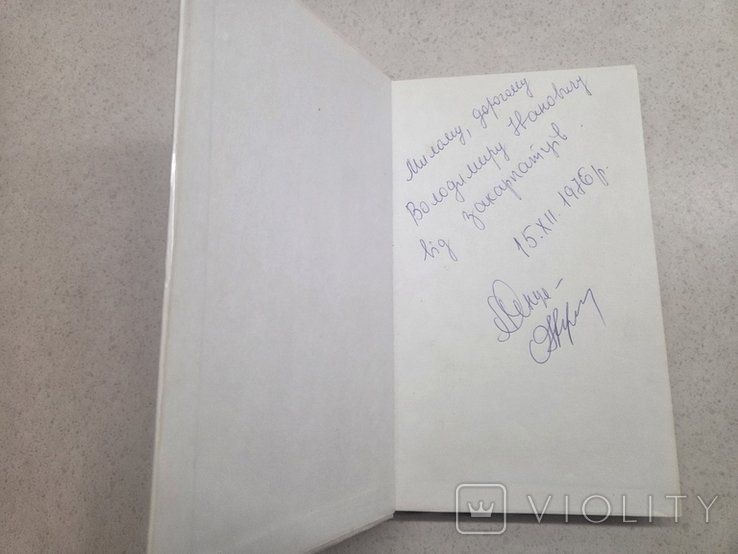 Милому, дорогому
Володимиру Івановичу
від закарпатців
15.XII.1976р.
VIOLITY